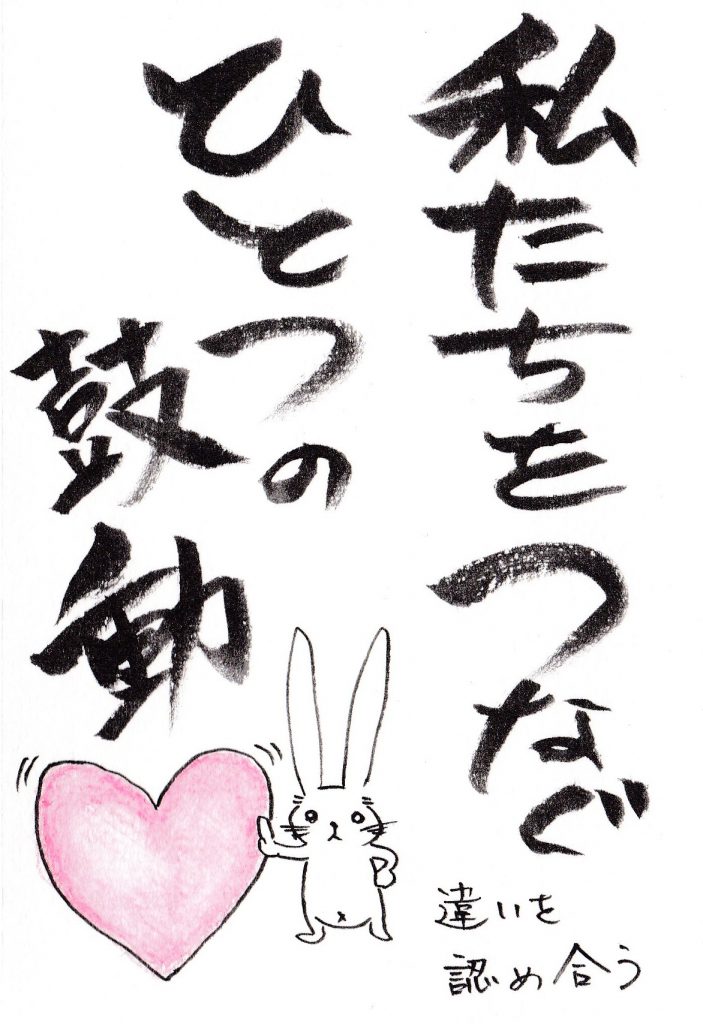 私たちをつなぐ
ひとつの
鼓動
違いを
認め合う